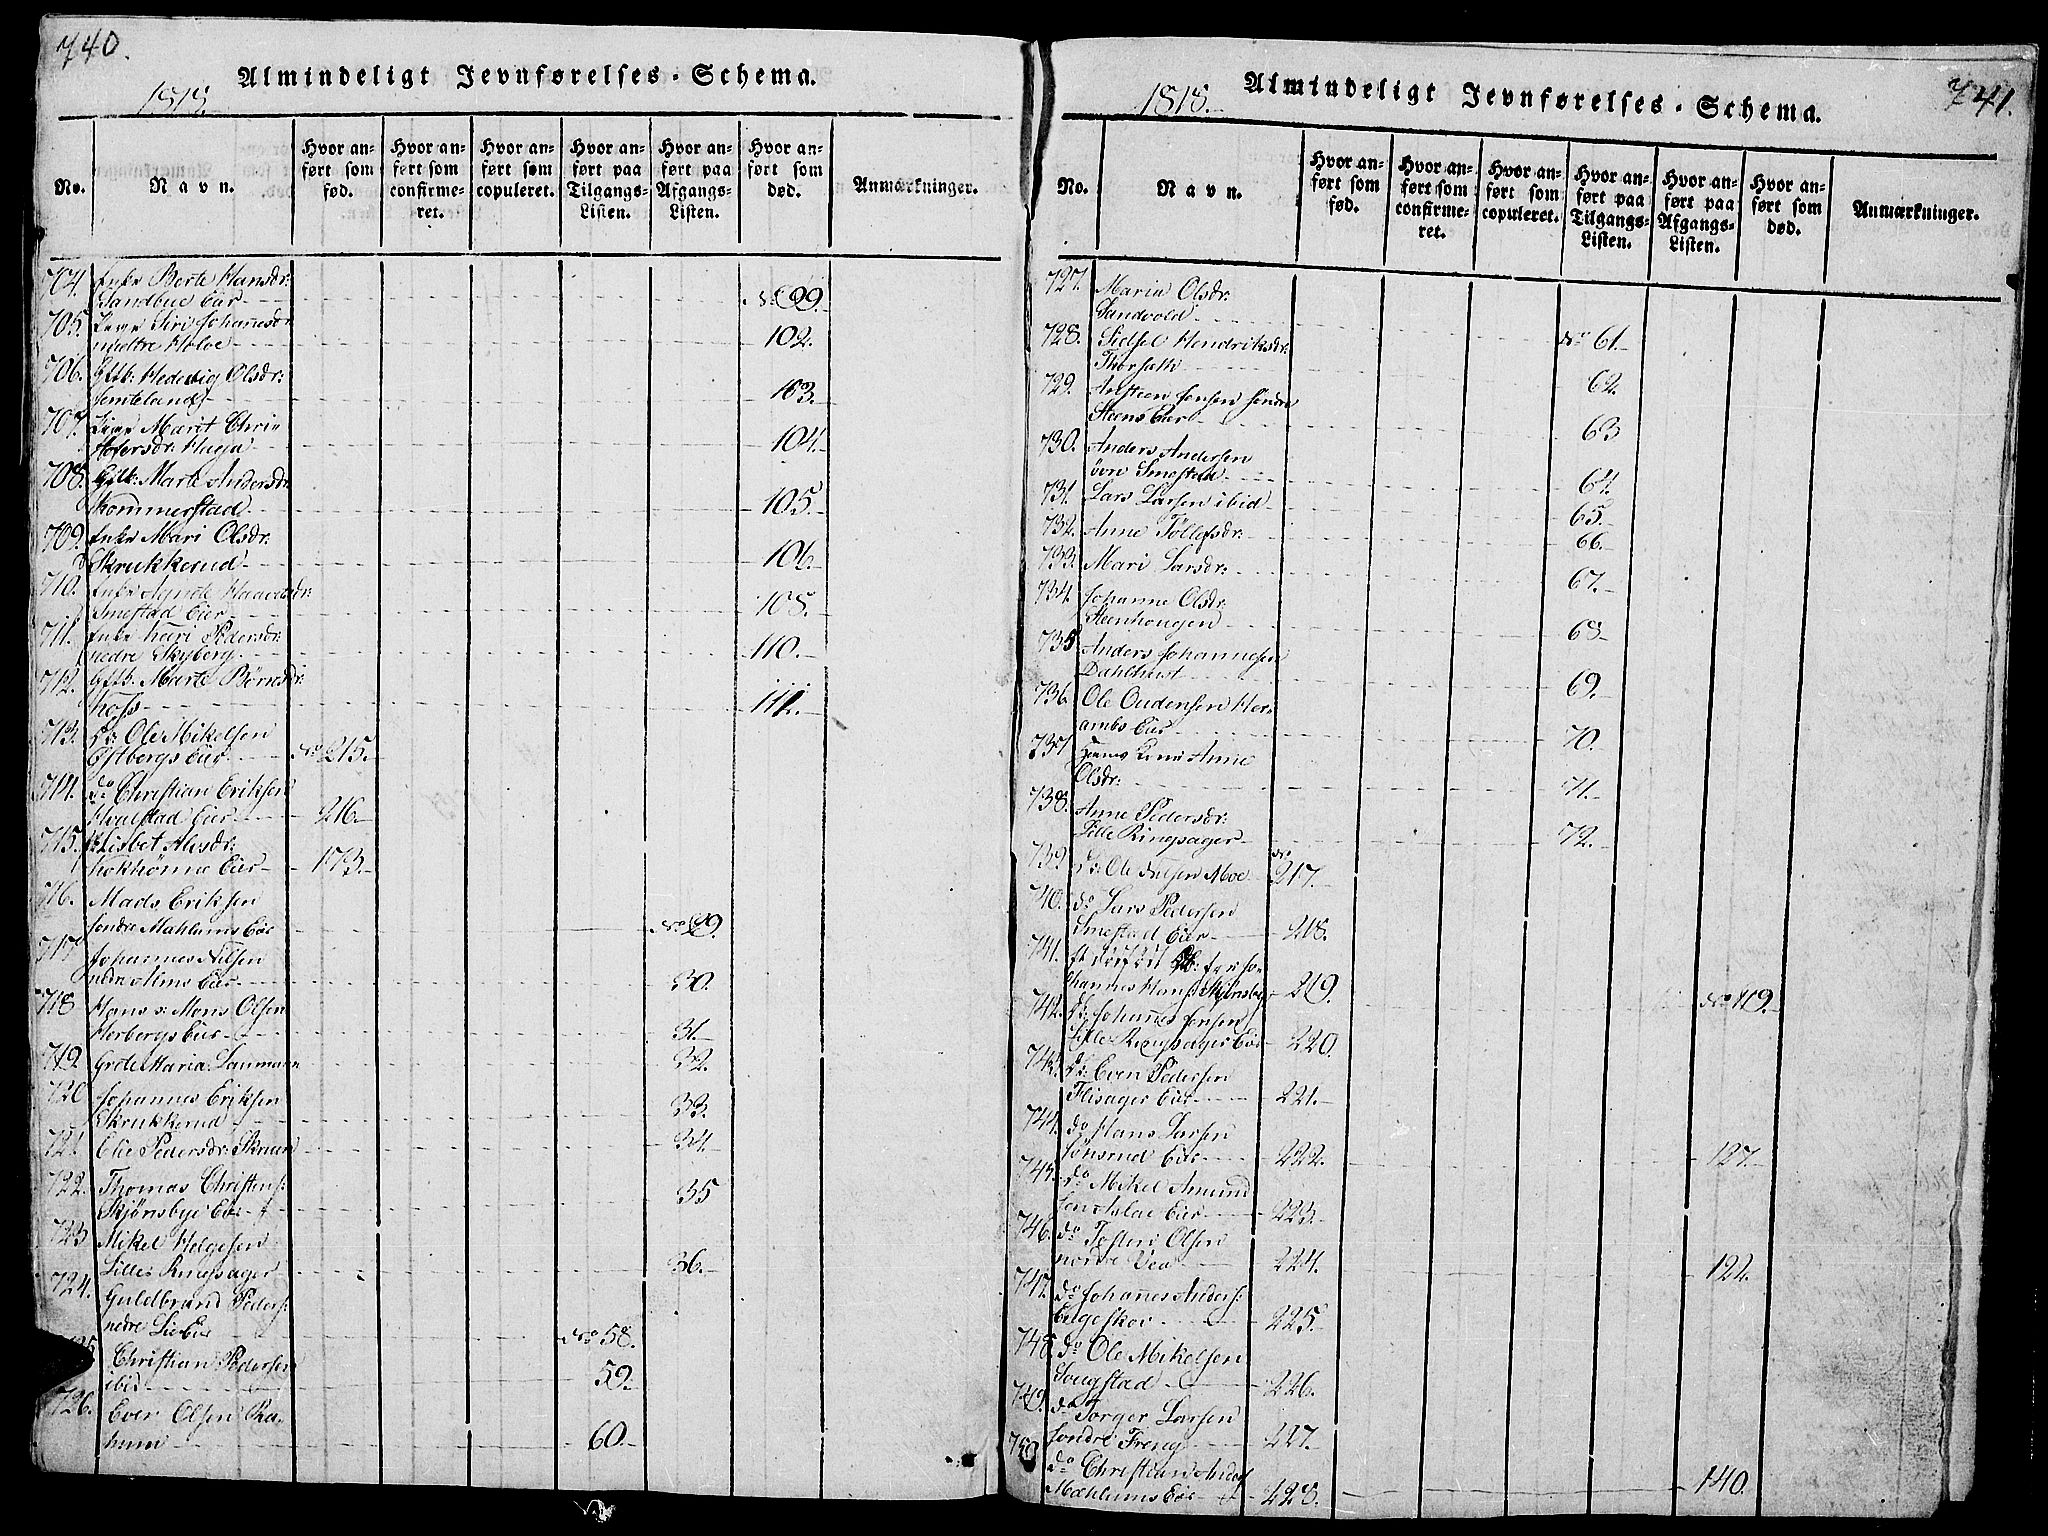 740.
Almindeligt Jevnførelses-Schema.
1818.
No.
Navn.
Hvor anført som fød.
Hvor anført som confirmeret.
Hvor anført som copuleret.
Hvor anført paa Tilgangs-Listen.
Hvor anført paa Afgangs-Listen.
Hvor anført som død.
Anmærkninger.
704. Enke Berte Hansdr:
Sandbye Eier No 99.
705. Siri Johannesdr
mellre Holve 102.
706. Gftk: Hedevig Olsdr:
Semteland 103.
707. Marit Chri
stofersdr Haga 104.
708. Marte Andersdr.
Kommerstad 105.
709. Enke Mari Olsdr.
Skrukkerud 106.
710. Enke Agnete Haavelsdr:
Smestad Eier 108.
711. Enke Kari Pedersdr:
nedre Skyberg 110.
712. Gftk. Marte Börresdr:
111.
713. Ole Mikelsen
Ostbergs Eier No 215.
714. do Christian Eriksen
Hvalstad Eier 216.
715. Lisbet Alvsdr:
Eier 173.
716. Mads Eriksen
söndre Mæhlums Eie No 29.
717 Johannes Nilsen
nedre Alms Eier 30.
718 Hans s: Mons Olsen
Herbergs Eier 31.
719. Grete Maria Laumann 32.
720 Johannes Eriksen
Skrukkerud 33.
721. Elie Pedersdr: Skruur 34.
722. Thomas Christens:
Skjönsbye Eie 35
723 Mikel Helgesen
Lille Ringsager 36.
724. Guldbrand Peders:
nedre Lie Eie No 58.
Christian Pedersen
ibid 59.
726. Even Olsen Ra-
hum 60.
741.
Almindeligt Jevnførelses-Schema.
1818.
No.
Navn.
Hvor anført som fød.
Hvor anført som confirmeret.
Hvor anført som copuleret.
Hvor anført paa Tilgangs-Listen.
Hvor anført paa Afgangs-Listen.
Hvor anført som død.
Anmærkninger.
727. Maria Olsdr:
Sandvold No 61.
728. Sidsel Hendriksdr:
62.
729. Ansteen Jonsen söndre
Steens Eier 63
730. Anders Andersen
övre Smestad 64.
731. Lars Larsen ibid 65.
732. Anne Töllefsdr: 66.
733. Mari Larsdr: 67.
734. Johanne Olsdr:
Steenhougen 68
735 Anders Johannesen
Dahlhust 69.
736. Ole Oudensen Her-
ambs Eier 70.
737 Hennes Anne
Olsdr: 71.
738. Anne Pedersdr:
Lille Ringsager 72.
739. Ole Nilsen Moe No 217.
740. do Lars Pedersen
Smestad Eier 218.
741.
hannes Hans: Skjönsbye 219. No 119.
742. Johannes Jensen
Lille Ringsager Eie 220.
743. Even Pedersen
Flisager Eier 221.
744. do Hans Larsen
Eie 222. 127.
745. do Mikel Amund
sen Eier 223.
746. do Tosten Olsen
nordre Vea 224. 122.
747. do Johannes Anders:
Engeskov 225.
748. do Ole Mikelsen
Sougstad 226.
749. do Torger Larsen
söndre Freng 227.
750 do Christian Anders
Mæhlums Eie 228. 140.